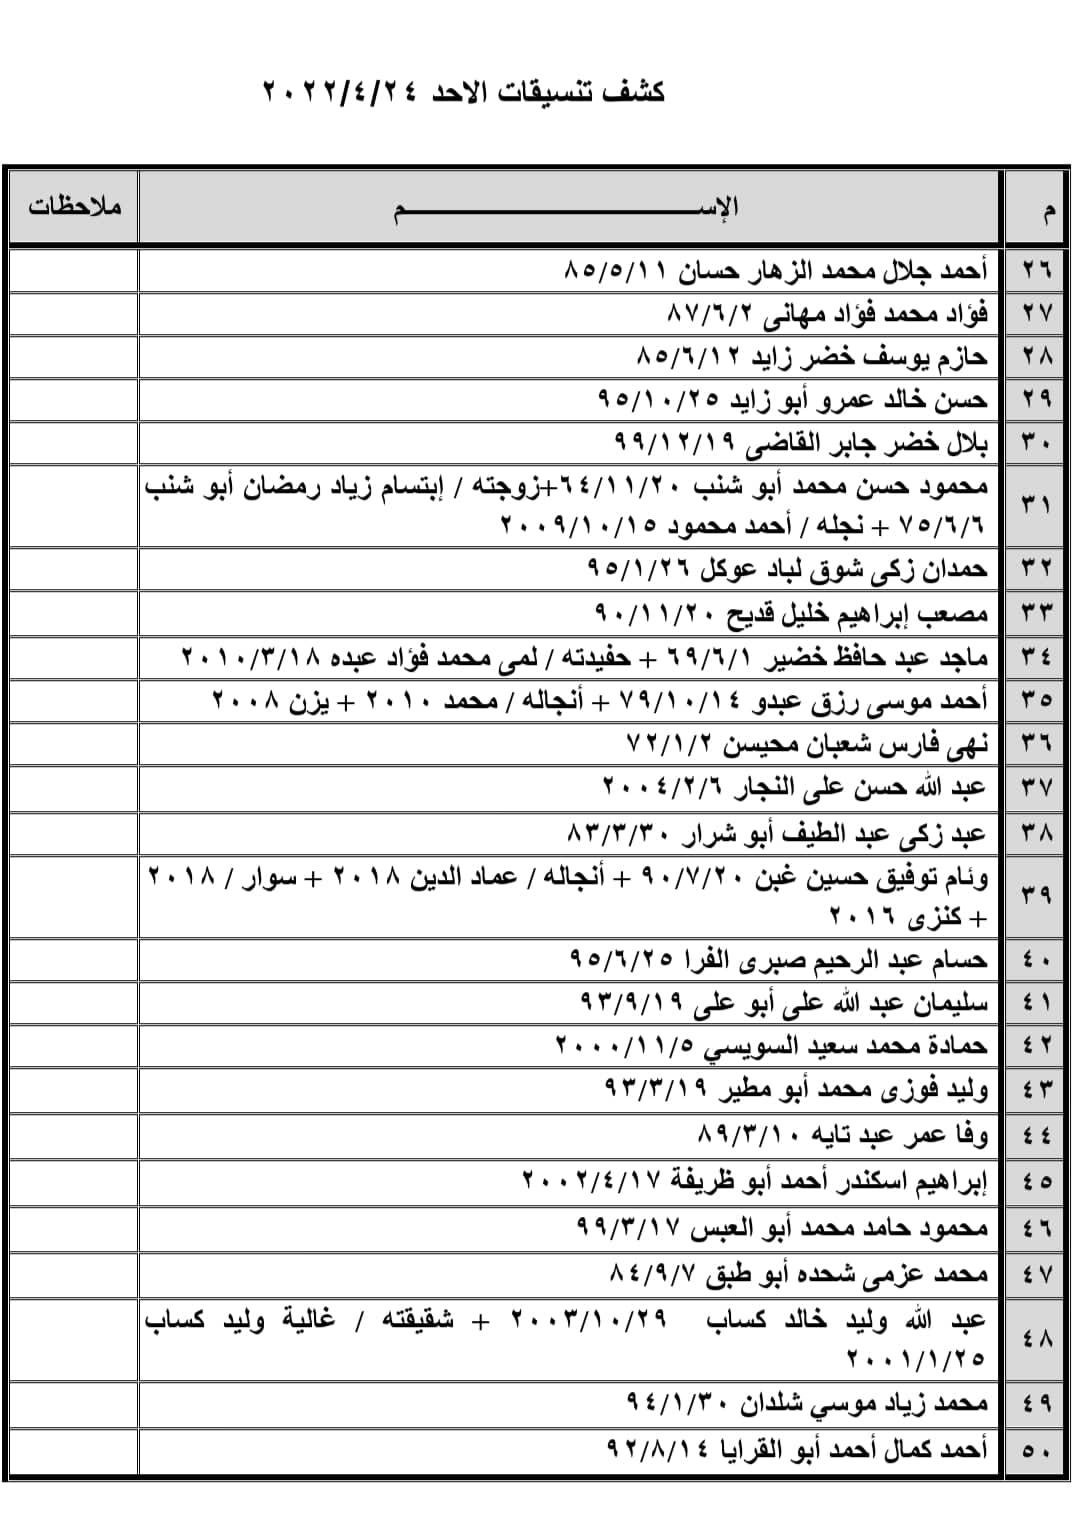 كشف تنسيقات الاحد ٢٠٢٢/٤/٢٤
م الإســـــــــــــم ملاحظات
٢٦ أحمد جلال محمد الزهار حسان ٨٥/٥/١١
٢٧ فؤاد محمد فؤاد مهانى ٨٧/٦/٢
٢٨ حازم يوسف خضر زايد ٨٥/٦/١٢
٢٩ حسن خالد عمرو أبو زايد ٩٥/١٠/٢٥
٣٠ بلال خضر جابر القاضى ٩٩/١٢/١٩
٣١ محمود حسن محمد أبو شنب ٦٤/١١/٢٠+زوجته / إبتسام زياد رمضان أبو شنب
٧٥/٦/٦ + نجله / أحمد محمود ٢٠٠٩/١٠/١٥
٣٢ حمدان زكى شوق لباد عوكل ٩٥/١/٢٦
٣٣ مصعب إبراهيم خليل قديح ٩٠/١١/٢٠
٣٤ ماجد عبد حافظ خضير ٦٩/٦/١ + حفيدته / لمى محمد فؤاد عبده ٢٠١٠/٣/١٨
٣٥ أحمد موسى رزق عبدو ٧٩/١٠/١٤ + أنجاله / محمد ٢٠١٠ + يزن ٢٠٠٨
٣٦ نهى فارس شعبان محيسن ٧٢/١/٢
٣٧ عبد الله حسن على النجار ٢٠٠٤/٢/٦
٣٨ عبد زكى عبد الطيف أبو شرار ٨٣/٣/٣٠
٣٩ وئام توفيق حسين غبن ٩٠/٧/٢٠ + أنجاله / عماد الدين ٢٠١٨ + سوار / ٢٠١٨
+ كنزى ٢٠١٦
٤٠ حسام عبد الرحيم صبرى الفرا ٩٥/٦/٢٥
٤١ سليمان عبد الله على أبو على ٩٣/٩/١٩
٤٢ حمادة محمد سعيد السويسي ٢٠٠٠/١١/٥
٤٣ وليد فوزى محمد أبو مطير ٩٣/٣/١٩
٤٤ وفا عمر عبد تايه ٨٩/٣/١٠
٤٥ إبراهيم اسكندر أحمد أبو ظريفة ٢٠٠٢/٤/١٧
٤٦ محمود حامد محمد أبو العبس ٩٩/٣/١٧
٤٧ محمد عزمى شحده أبو طبق ٨٤/٩/٧
٤٨ عبد الله وليد خالد كساب ٢٠٠٣/١٠/٢٩ + شقيقته / غالية وليد كساب
٢٠٠١/١/٢٥
٤٩ محمد زياد موسي شلدان ٩٤/١/٣٠
٥٠ أحمد كمال أحمد أبو القرايا ٩٢/٨/١٤